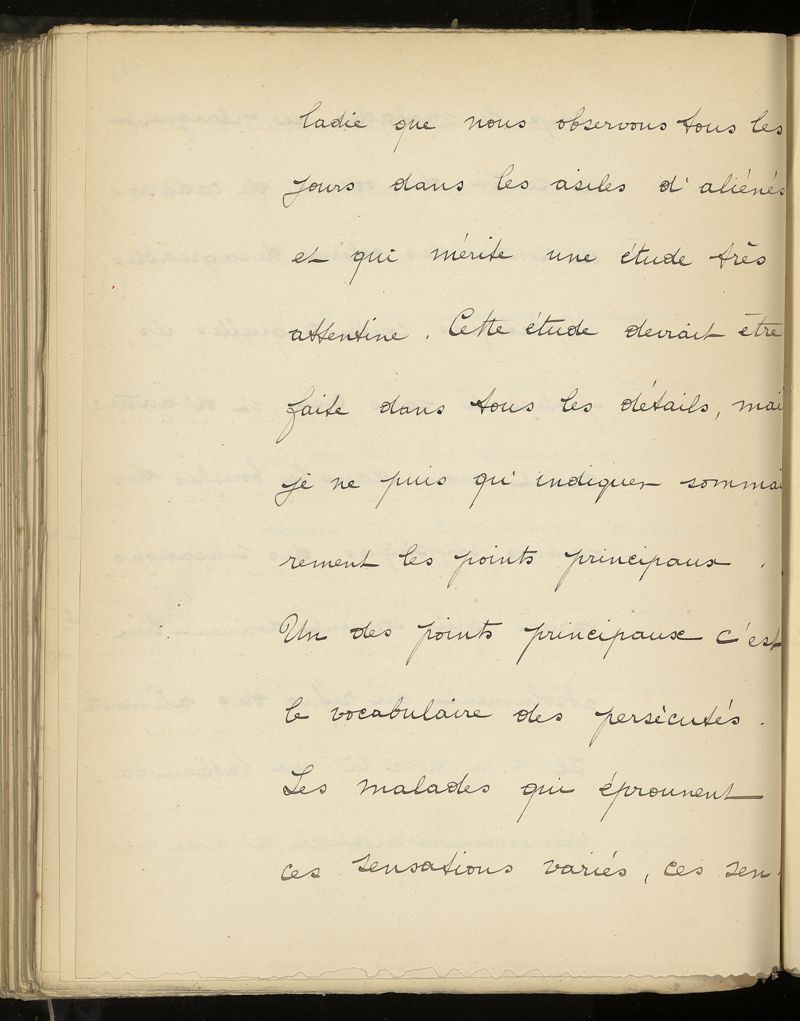 ladie que nous observons tous les
jours dans les asiles d'aliénés
et qui mérite une étude très
attentive. Cette étude devrait être
faite dans tous les détails, mai
je ne puis qu'indiquer sommai
rement les points principaux.
Un des points principaux c'est
le vocabulaire des persécutés.
Les malades qui éprouvent
ces sensations variés, ces sen-